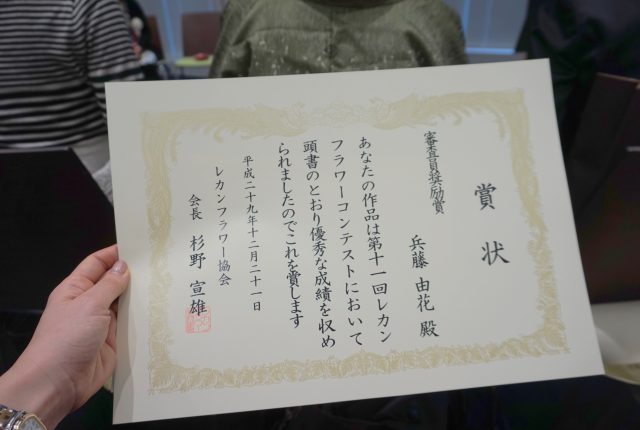 賞状
審査員奨励賞
兵藤由花殿
あなたの作品は第十一回レカン
フラワーコンテストにおいて
頭書のとおり優秀な成績を収め
られましたのでこれを賞します
平成二十九年十二月二十一日
レカンフラワー協会
会長 杉野宣雄